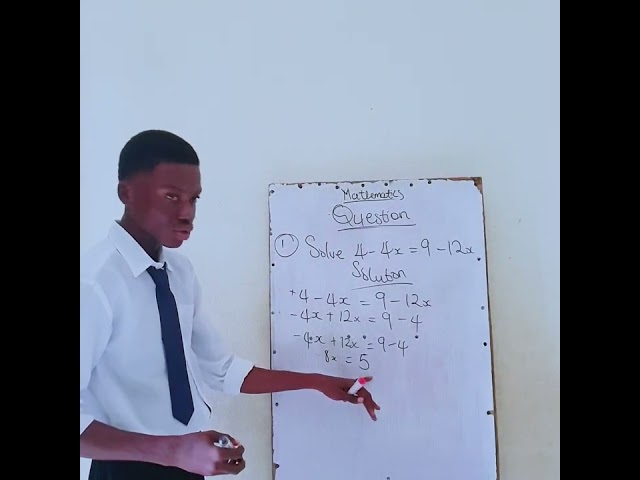 Mathematics
Question
1 Solve 4-4x=9-12x
Solution
+4-4x=9-12x
-4x+12x=9-4
-4x+12x=9-4
8x=5